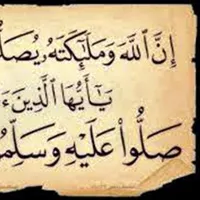 إِنَّ ٱللَّهَ وَمَلَٰٓئِكَتَهُۥ يُصَلُّ
يَٰٓأَيُّهَا ٱلَّذِينَ ءَ
صَلُّوا۟ عَلَيْهِ وَسَلِّمُ